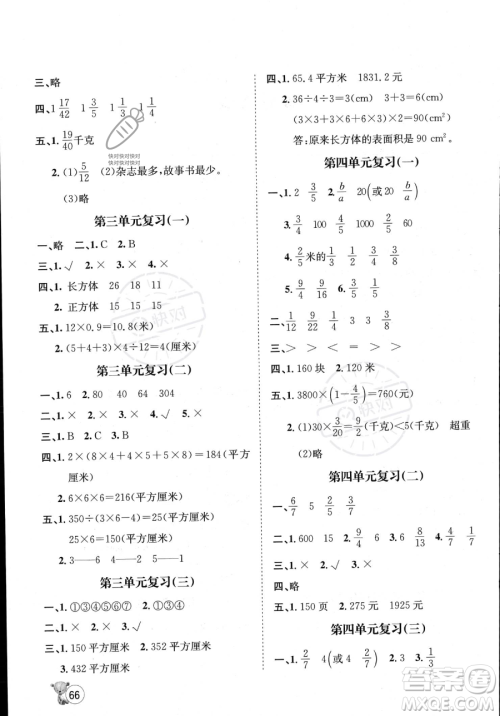 三、略
四、1 17/42　1 3/5　1 1/3　1 1/4
五、1. 19/40千克
2.(1)5/12　(2)杂志最多,故事书最少。
(3)略
第三单元复习(一)
一、略　二、1.C　2.B
三、1.√　2.×　3.×
四、1.长方体　26　18　11
2.正方体　15　15　15
五、1.12×0.9=10.8(米)
2.(5+4+3)×4÷12=4(厘米)
第三单元复习(二)
一、1.6　2.80　40　64　304
二、1.×　2.×　3.√
三、1.B　2.C　3.A
四、1.2×(8×4+5×4)+8×5×2=176(平方厘米)
2.6×6×6=216(平方厘米)
五、1.350÷(2+3+2)=50(平方厘米)
25×6=150(平方厘米)
2.3——4——5
第三单元复习(三)
一、1.①③④⑥⑦　2.①④
二、1.×　2.×　3.√
三、1.150平方厘米　2.352平方厘米
3.432平方厘米
快对快对快对
快对快对快对
快对
66
四、1.65.4平方米　1831.2元
2.36÷4÷3=3(cm)　3+3=6(cm)
(3×3+3×6+3×6)×2=90(cm²)
答:原来长方体的表面积是90 cm²。
第四单元复习(一)
一、1.2　3/5　2.b/a　20(或20 b/a)
3.1/40　7/8　4.100　1000
二、1.2/5米的1/2　1/2　1/3　1/4　3/4
2.×
三、>　>　<　=　>
四、1.160块　2.√　×　√
五、1.3800×(1-4/5)=760(元)
2.(1)30×3/20=9/2(千克)<5(千克)　超重
(2)略
第四单元复习(二)
一、1.6/7　5　2.5/2　3.2/7
二、1.9/40　2.45　3.6/35
三、1.×　2.√　3.×
四、略
五、1.150页　2.675元　1925元
第四单元复习(三)
一、1.2/7　2.4(或5)　3.1/3